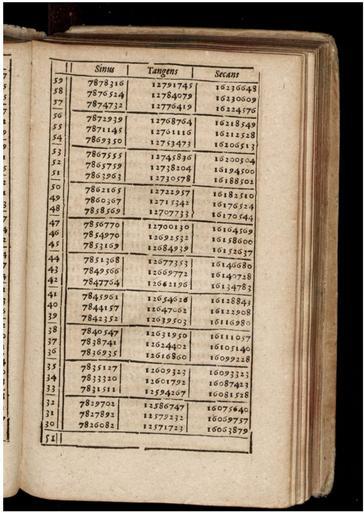 Sinus | Tangens | Secans
59 | 7878316 | 12791745 | 16236648
58 | 7876524 | 12784079 | 16230609
57 | 7874732 | 12776419 | 16224576
56 | 7872939 | 12768764 | 16218549
55 | 7871145 | 12761116 | 16212528
54 | 7869350 | 12753473 | 16206513
53 | 7867555 | 12745836 | 16200504
52 | 7865759 | 12738204 | 16194500
51 | 7863963 | 12730578 | 16188502
50 | 7862165 | 12722957 | 16182510
49 | 7860367 | 12715342 | 16176524
48 | 7858569 | 12707733 | 16170544
47 | 7856770 | 12700130 | 16164569
46 | 7854970 | 12692532 | 16158600
45 | 7853169 | 12684939 | 16152637
44 | 7851368 | 12677353 | 16146680
43 | 7849566 | 12669772 | 16140728
42 | 7847764 | 12662196 | 16134783
41 | 7845961 | 12654626 | 16128843
40 | 7844157 | 12647062 | 16122908
39 | 7842352 | 12639503 | 16116980
38 | 7840547 | 12631950 | 16111057
37 | 7838741 | 12624402 | 16105140
36 | 7836935 | 12616860 | 16099228
35 | 7835127 | 12609323 | 16093323
34 | 7833320 | 12601792 | 16087423
33 | 7831511 | 12594267 | 16081528
32 | 7829702 | 12586747 | 16075640
31 | 7827892 | 12579232 | 16069757
30 | 7826082 | 12571723 | 16063879
51